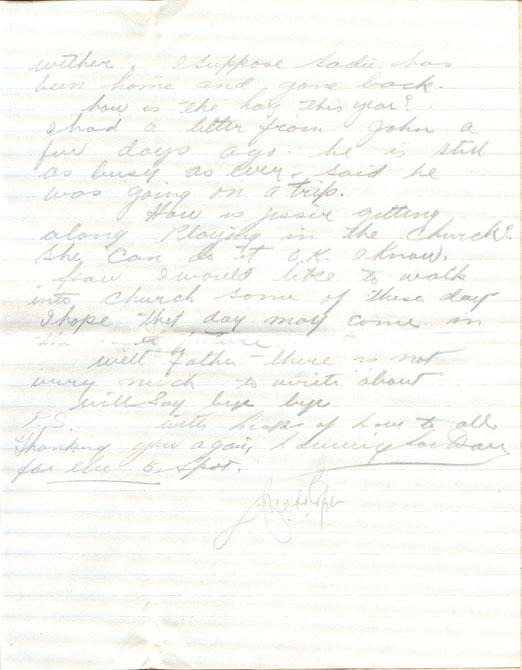 wether. I suppose Sadie has
been home and gone back.
how is the hay this year?
I had a letter from John a
few days ago. he is still
as busy as ever, said he
was going on a trip.
How is jessie getting
along Playing in the Church?
She Can do it O.K. I Know.
how I would like to walk
into church some of these day
I hope that day may come in
future.
well Father - there is not
very much to write about
will Say bye bye
P.S. with heaps of Love to all
Thanking you again, Son Dan
for the 5 Spot.